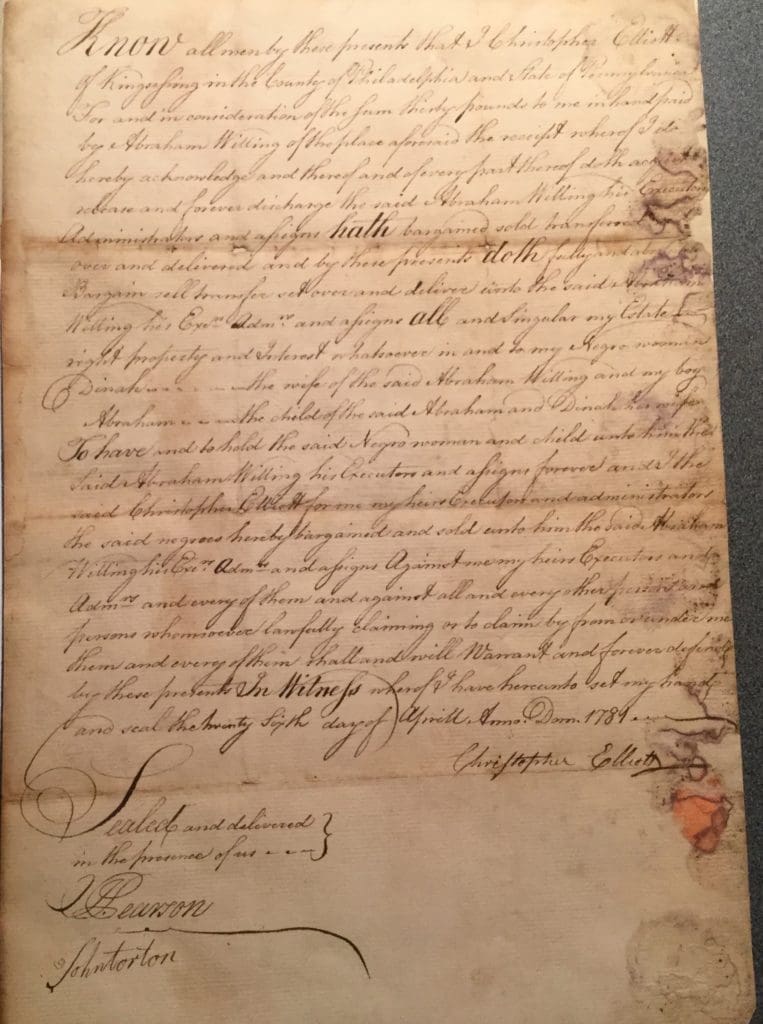 Know all men by these presents that I Christopher Elliott
of Kingsessing in the County of Philadelphia and State of Pennsylvania
For and in consideration of the sum thirty pounds to me in hand paid
by Abraham Willing of the place aforesaid the receipt whereof I do
hereby acknowledge and thereof and of every part thereof doth acquit
release and forever discharge the said Abraham Willing his Executors
Administrators and assigns hath bargained sold transferred
over and delivered and by these presents doth fully and
Bargain sell transfer set over and deliver unto the said Abraham
Willing his Exers Admrs and assigns all and Singular my Estate
right property and Interest whatsoever in and to my Negro woman
Dinah - - - - the wife of the said Abraham Willing and my boy
Abraham - - - the child of the said Abraham and Dinah his wife
To have and to hold the said Negro woman and child unto him the
said Abraham Willing his Executors and assigns forever and I the
said Christopher Elliott for me my heirs Executors and administrators
the said negroes hereby bargained and sold unto him the said Abraham
Willing his Exers Admrs and assigns Against me my heirs Executors and
Admrs and every of them and against all and every other person and
persons whomsoever lawfully claiming or to claim by from or under me
them and every of them shall and will Warrant and forever defend
by these presents In Witness whereof I have hereunto set my hand
and seal the twenty Sixth day of Aprill Anno. Dom. 1781
Christopher Elliott
Sealed and delivered
in the presence of us - - -
Pearson
John Torton